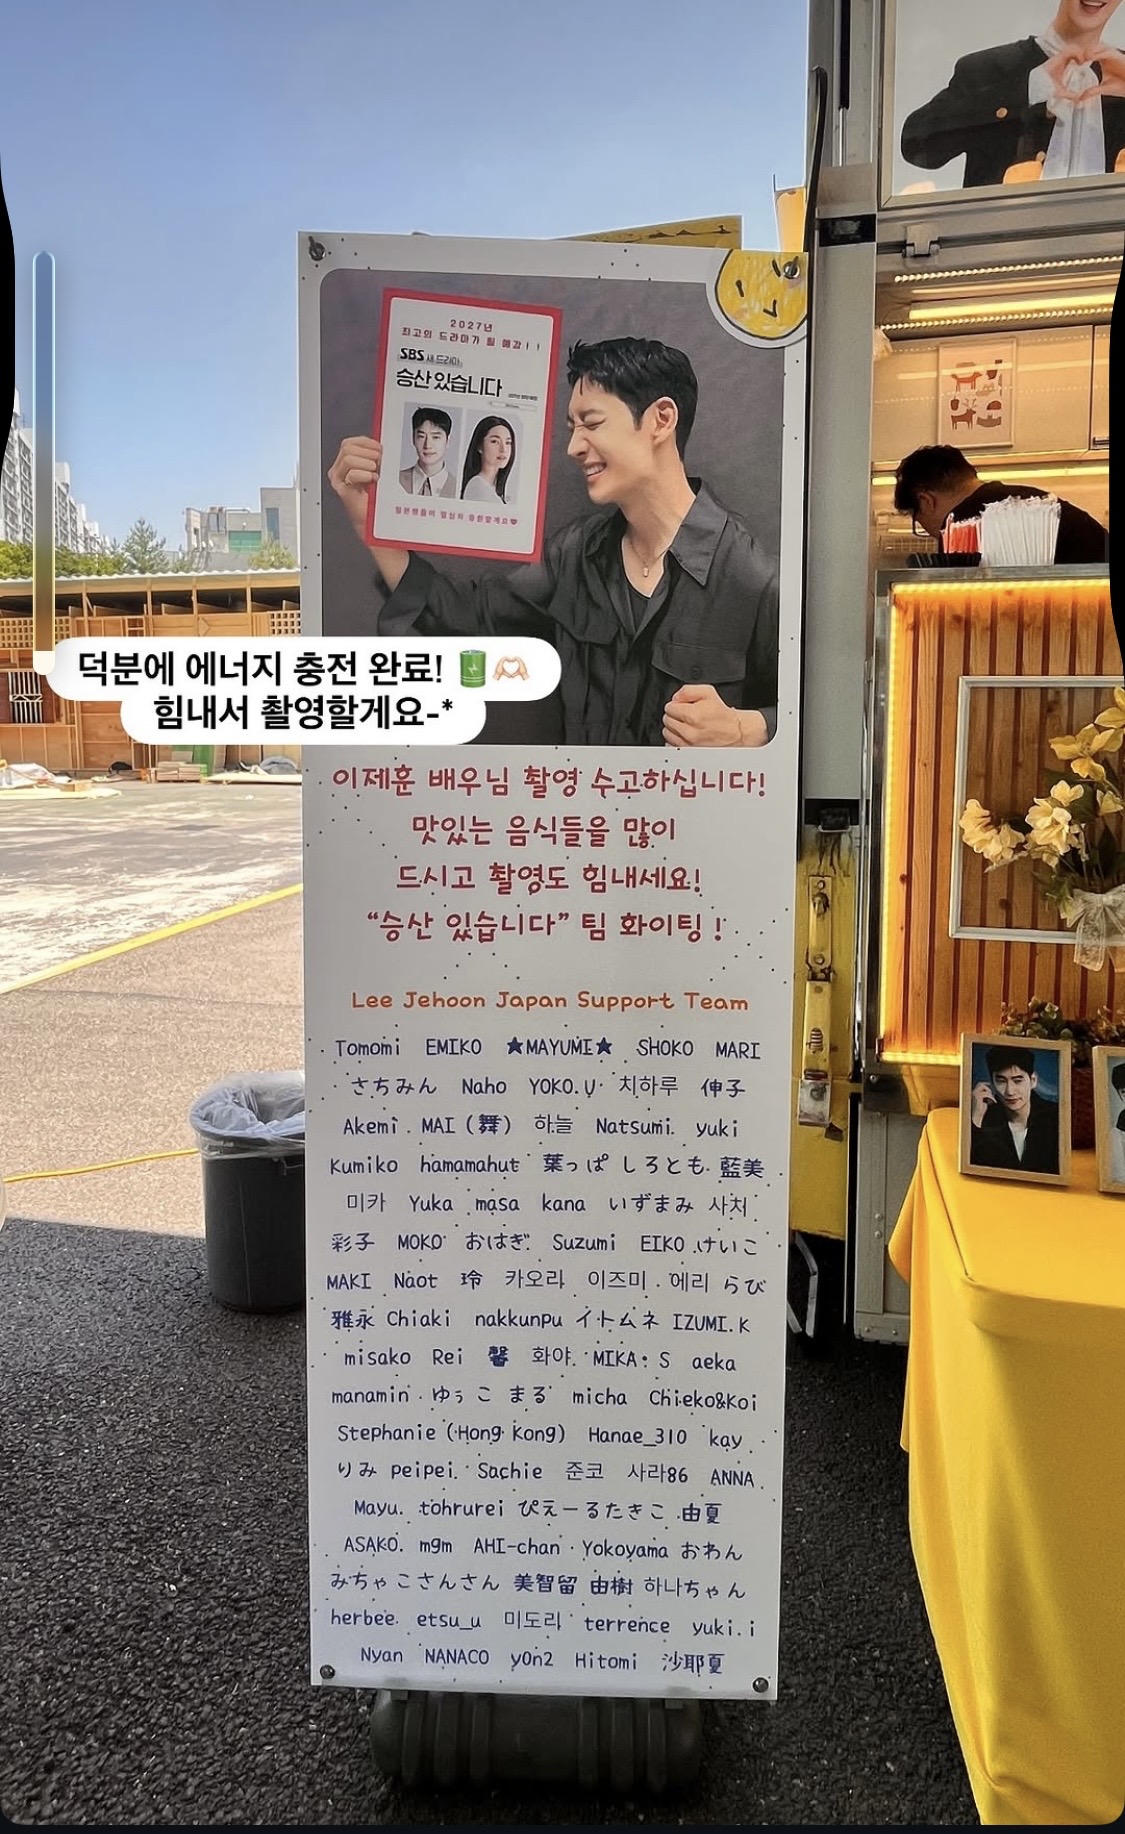 2027년
최고의 드라마가 될 예감!!
SBS 새 드라마
승산 있습니다
일본팬들이 열심히 응원할게요♥
덕분에 에너지 충전 완료! 🔋🫶🏻
힘내서 촬영할게요-*
이제훈 배우님 촬영 수고하십니다!
맛있는 음식들을 많이
드시고 촬영도 힘내세요!
“승산 있습니다” 팀 화이팅!
Lee Jehoon Japan Support Team
Tomomi EMIKO ★MAYUMI★ SHOKO MARI
さちみん Naho YOKO.U 치하루 伸子
Akemi MAI (舞) 하늘 Natsumi yuki
Kumiko hamamahut 葉っぱ しろとも 藍美
미카 Yuka masa kana いずまみ 사처
彩子 MOKO おはぎ Suzumi EIKO けいこ
MAKI Naot 玲 카오라 이즈미 에리 らび
雅永 Chiaki nakkunpu イトムネ IZUMI.K
misako Rei 馨 화야 MIKA・S aeka
manamin ゆぅこ まる micha Chieko&Koi
Stephanie (Hong Kong) Hanae_310 kay
りみ peipei Sachie 준코 사라86 ANNA
Mayu tohrurei ぴえーるたきこ 由夏
ASAKO mgm AHI-chan Yokoyama おわん
みちゃこさんさん 美智留 由樹 하나ちゃん
herbee etsu_u 미도리 terrence yuki.i
Nyan NANACO y0n2 Hitomi 沙耶夏